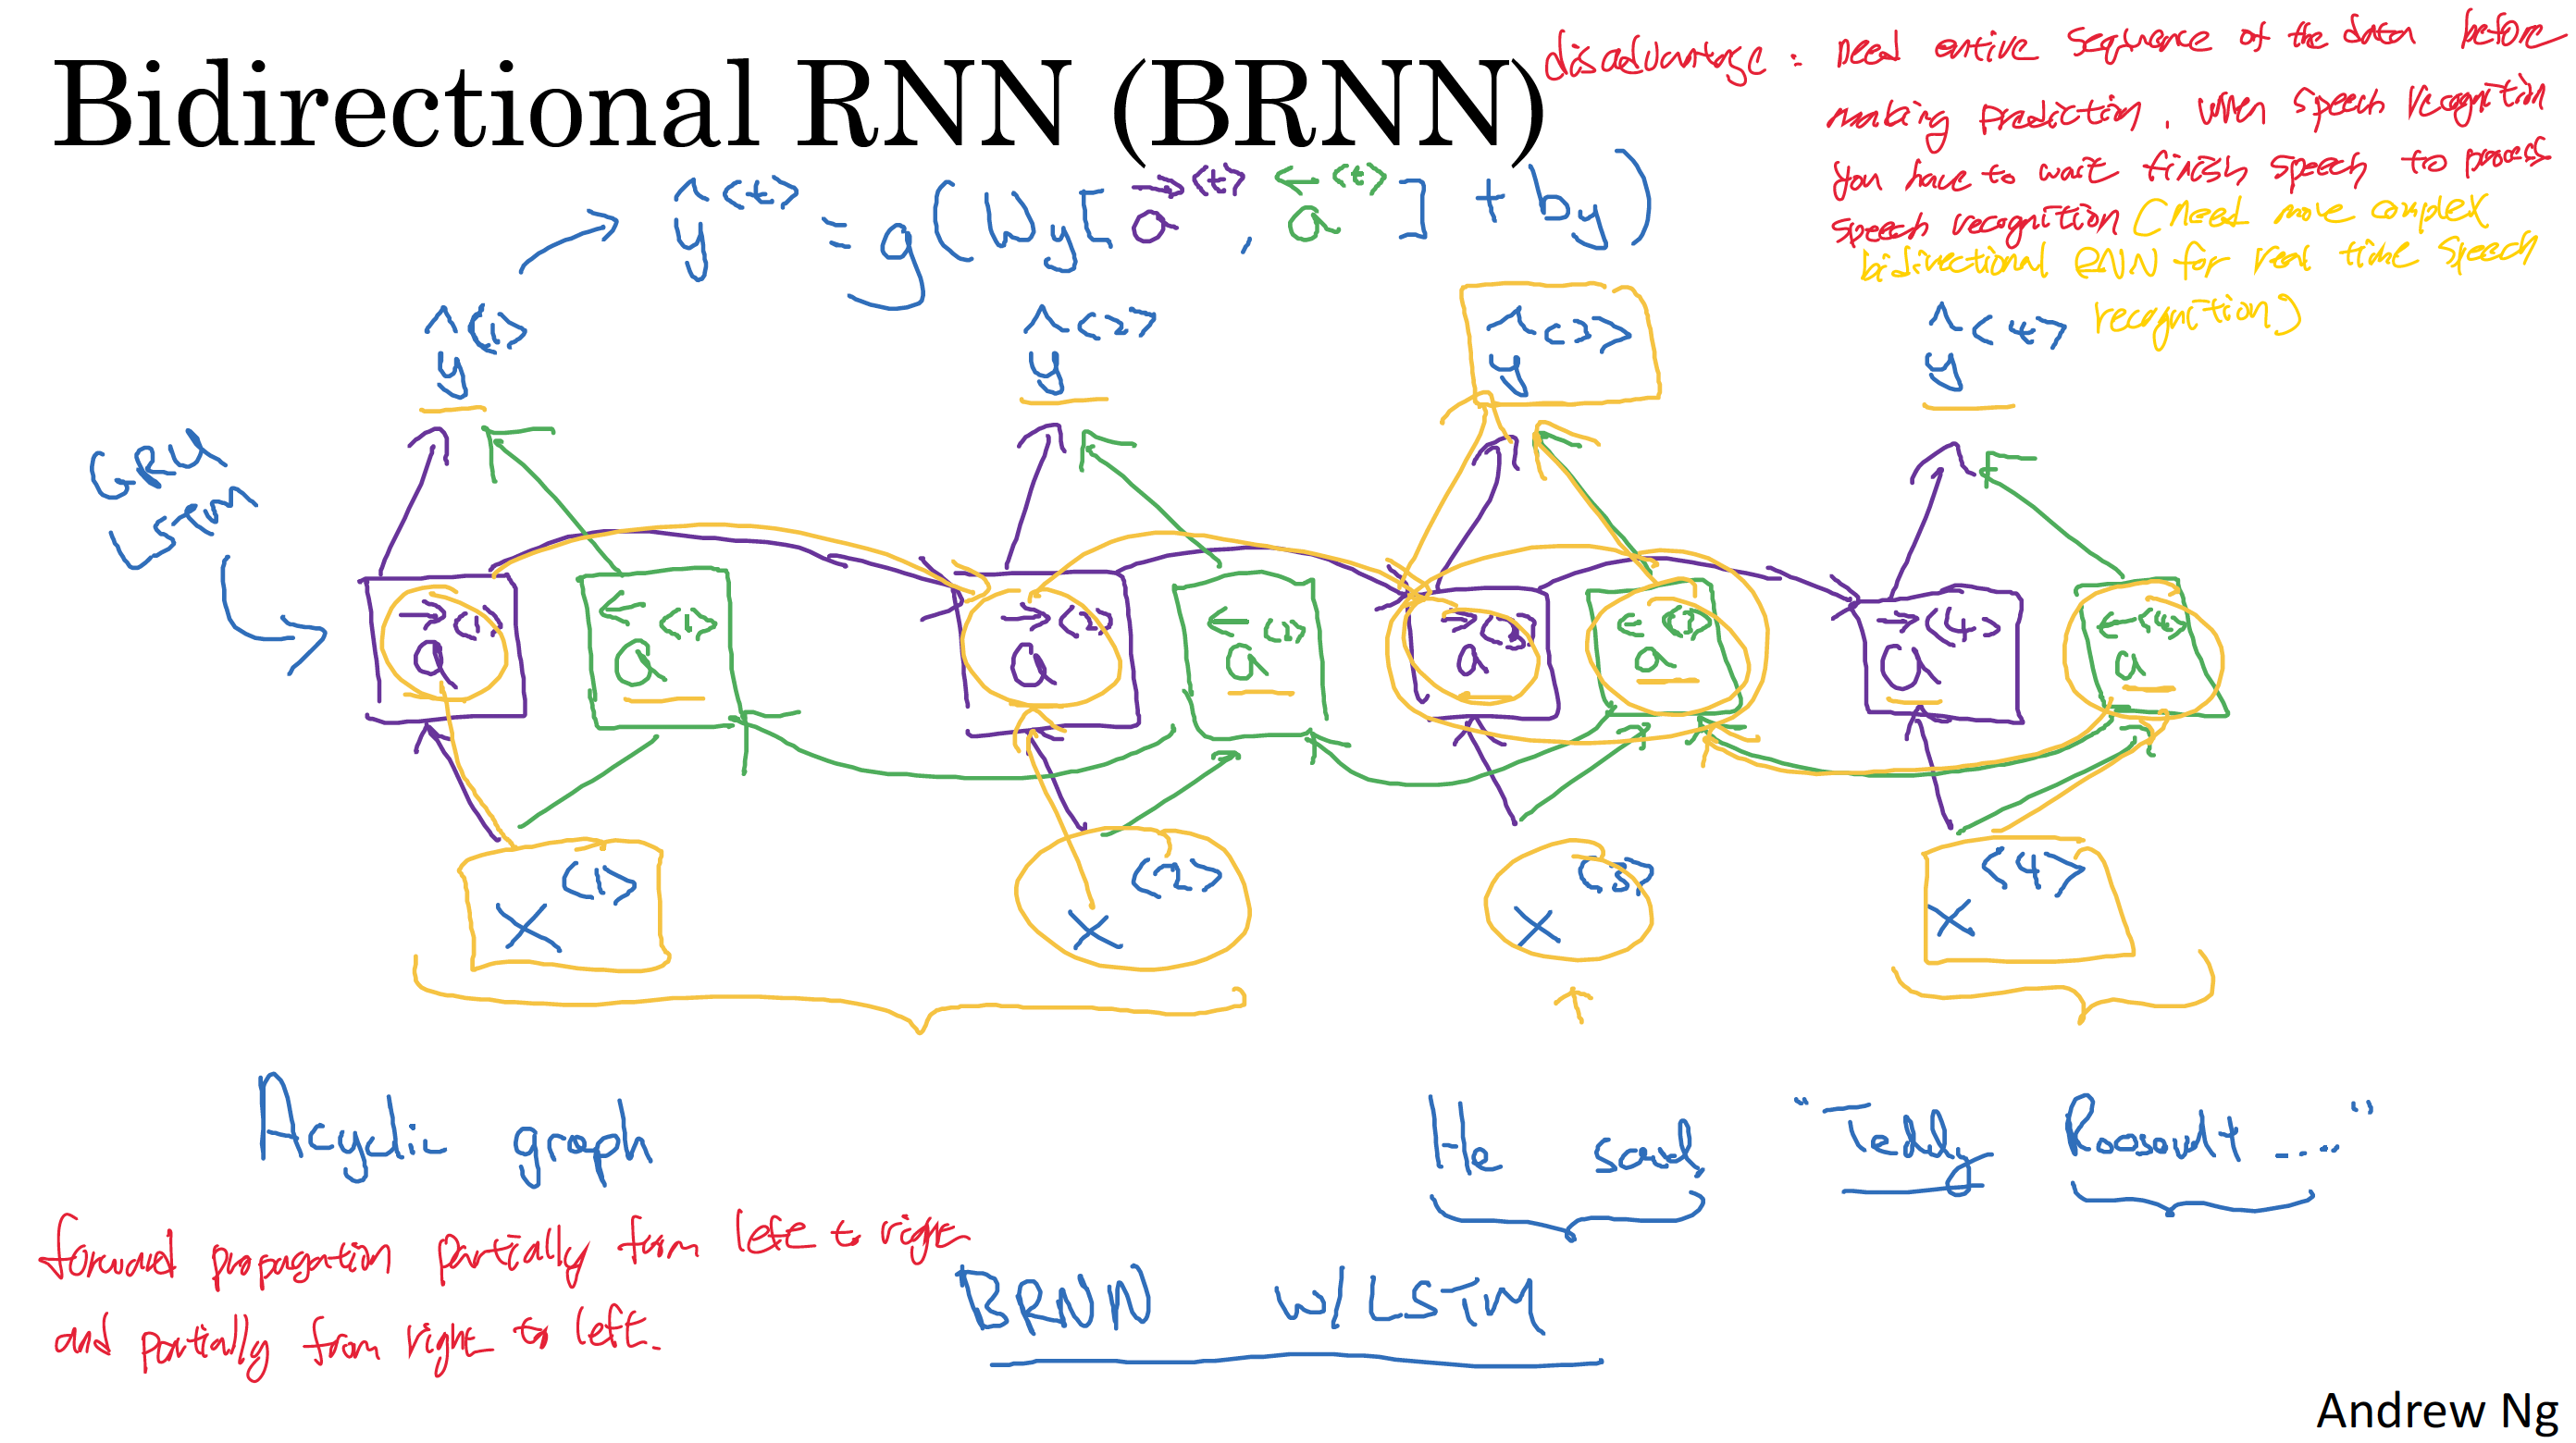 Bidirectional RNN (BRNN)
disadvantage : need entire sequence of the data before
making prediction. when speech recognition
you have to wait finish speech to process
speech recognition (need more complex
bidirectional RNN for real time speech
recognition)
ŷ<t> = g(Wy[→a<t>, ←a<t>] + by)
ŷ<1> ŷ<2> ŷ<3> ŷ<4>
GRU
LSTM
→a<1> ←a<1> →a<2> ←a<2> →a<3> ←a<3> →a<4> ←a<4>
x<1> x<2> x<3> x<4>
Acyclic graph
He said, "Teddy Roosevelt ...."
forward propagation partially from left to right
and partially from right to left.
BRNN w/LSTM
Andrew Ng